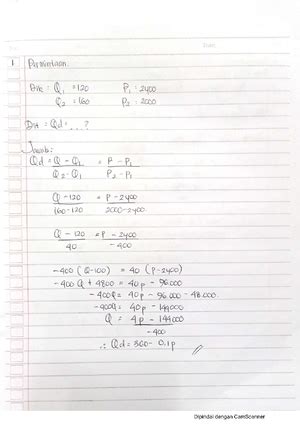 No.
Date.
1 Permintaan.
Dik : Q₁ = 120 P₁ : 2400
Q₂ = 160 P₂ : 2000
Dit = Qd = . . . ?
Jawab :
Qd = Q - Q₁ = P - P₁
Q₂ - Q₁ P₂ - P₁
Q - 120 = P - 2400
160 - 120 2000 - 2400
Q - 120 = P - 2400
40 -400
-400 (Q - 100) = 40 (P - 2400)
-400 Q + 4800 = 40 p - 96000
-400Q = 40p - 96.000 - 48.000
-400Q = 40p - 144000
Q = 4p - 144000
-400
∴ Qd = 360 - 0.1p
Dipindai dengan CamScanner